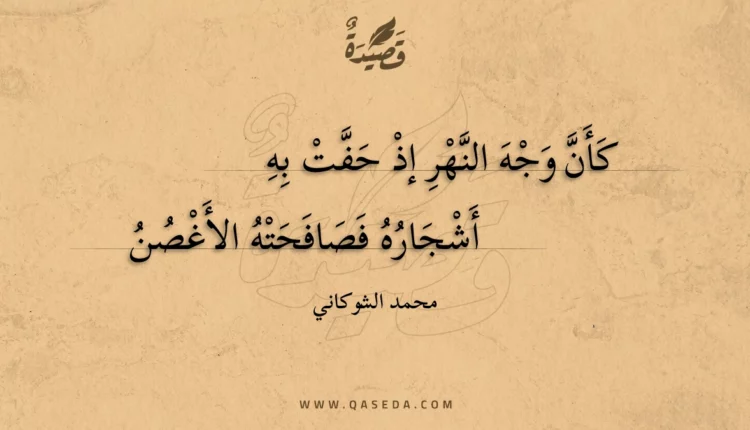 قَصِيدَةٌ
كَأَنَّ وَجْهَ النَّهْرِ إذْ حَفَّتْ بِهِ
أَشْجَارُهُ فَصَافَحَتْهُ الأَغْصُنُ
محمد الشوكاني
WWW.QASEDA.COM